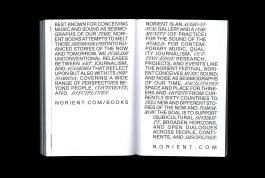 BEST KNOWN FOR CONCEIVING
MUSIC AND SOUND AS SEISMO-
GRAPHS OF OUR TIME, NORI-
ENT BOOKS ATTEMPTS TO MELT
THESE INTO NU-
ANCED STORIES OF THE NOW
AND TOMORROW. WE
UNCONVENTIONAL RELEASES
BETWEEN ART, JOURNALISM,
AND THAT REFLECT
UPON BUT ALSO WITH ITS
, COVERING A WIDE
RANGE OF PERSPECTIVES BE-
YOND PEOPLE, CONTINENTS,
AND DISCIPLINES.
NORIENT.COM/BOOKS
NORIENT IS AN
GALLERY AND A COM-
MUNITY (OF PRACTICE)
FOR THE SOUND OF THE
WORLD: FOR CONTEM-
PORARY MUSIC, QUAL-
ITY JOURNALISM,
RESEARCH,
PROJECTS, AND EVENTS LIKE
THE NORIENT FESTIVAL. NORI-
ENT CONCEIVES MUSIC, SOUND,
AND NOISE AS SEISMOGRAPHS
OF OUR TIME,
SPACE AND PLACE FOR THINK-
ERS AND ARTISTS FROM CUR-
RENTLY SIXTY COUNTRIES TO
TELL NEW AND DIFFERENT STO-
RIES OF THE NOW AND TOMOR-
ROW. THE GOAL IS TO SUPPORT
(SUB)CULTURAL DIVERSI-
TY, BROADEN HORIZONS,
AND OPEN DIALOGUES
ACROSS PEOPLE, CONTI-
NENTS, AND DISCIPLINES.
NORIENT.COM